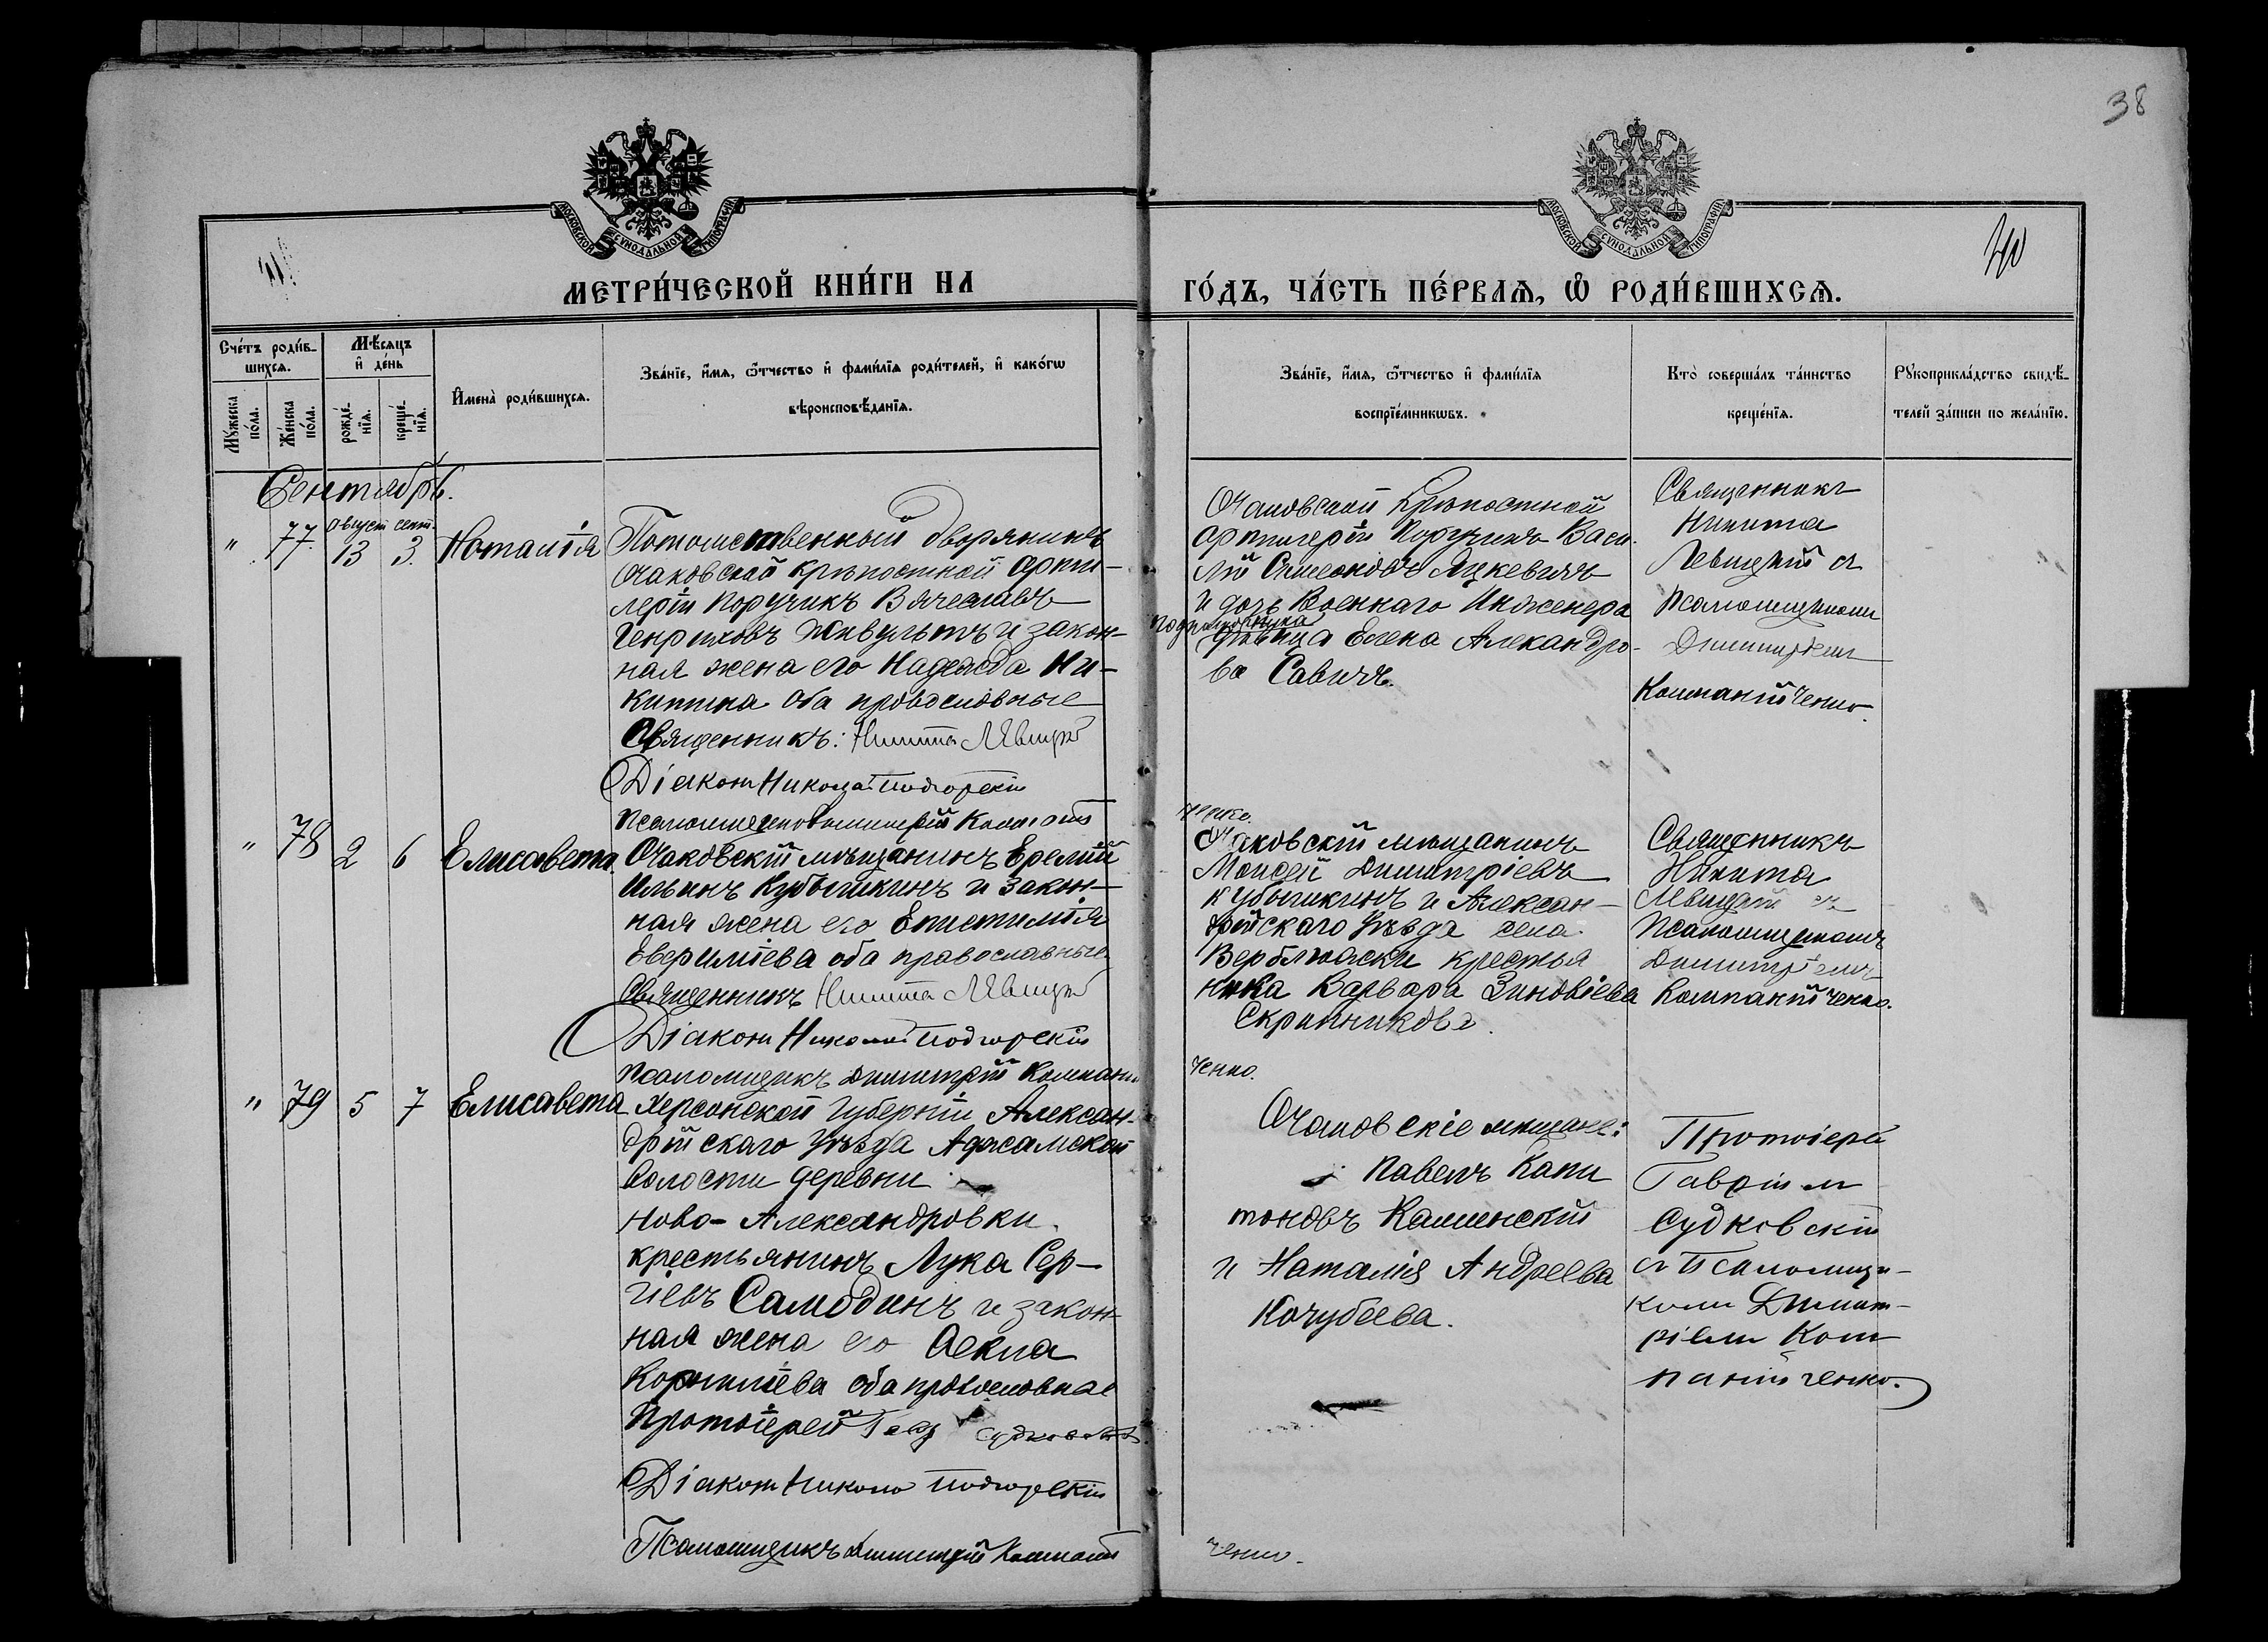 38
МОСКОВСКОЙ СѴНОДАЛЬНОЙ ТИПОГРАФІИ
МОСКОВСКОЙ СѴНОДАЛЬНОЙ ТИПОГРАФІИ
40
МЕТРИ́ЧЕСКОЙ КНИ́ГИ НА
ГО́ДЪ, ЧА́СТЬ ПЕ́РВАѦ, Ѡ҃ РОДИ́ВШИХСѦ.
Сче́тъ роди́в-
шихсѧ.
Мѣ́сяцъ
и҆ де́нь
Мꙋ́жеска
по́ла.
Же́нска
по́ла.
рожде́-
нїѧ.
креще́-
нїѧ.
И҆мена̀ роди́вшихсѧ.
Зва́нїе, и҆́мѧ, ѻ҆́тчество и҆ фами́лїѧ роди́телей, и҆ како́гѡ
вѣроисповѣ́данїѧ.
Зва́нїе, и҆́мѧ, ѻ҆́тчество и҆ фами́лїѧ
воспрїе́мникѡвъ.
Кто̀ соверша́лъ та́инство
креще́нїѧ.
Рꙋкоприкла́дство свидѣ́-
телей за́писи по жела́нїю.
Сентябрь.
" 77. август 13 сент. 3. Наталія
Потомственный дворянинъ
Очаковской крѣпостной арти-
леріи Поручикъ Вячеславъ
Генриховъ и закон-
ная жена его Надежда Ни-
китина оба православные
Священникъ: Никита Лѣвицкій
Діаконъ Николай Подгорскій
Псаломщикъ Димитрій Компаній
ченко.
Очаковской Крѣпостной
артилеріи Поручикъ Васи-
лій Симеоновъ Яцкевичъ
и дочь Военнаго Инженера
подполковника
дѣвица Елена Александро-
ва Савичъ.
Священникъ
Никита
Левицкій съ
Псаломщикомъ
Димитріемъ
Компанійченко.
" 78 2 6 Елисавета
Очаковскій мѣщанинъ Еремій
Ильинъ Кубышкинъ и закон-
ная жена его Епистимія
оба православные
Священникъ Никита Лѣвицкій
Діаконъ Николай Подгорскій
Псаломщикъ Димитрій Компаній
ченко.
Очаковскій мѣщанинъ
Моисей Димитріевъ
Кубышкинъ и Алексан-
дрійскаго Уѣзда села
Верблюжки крестья
нка Варвара Зиновіева
Скрипникова.
Священникъ
Никита
Лѣвицкій съ
Псаломщикомъ
Димитріемъ
Компанійченко.
" 79 5 7 Елисавета
Херсонской Губерніи Алексан-
дрійскаго Уѣзда Аджамской
Волости деревни
Ново-Александровки
крестьянинъ Лука Сер-
гіевъ Самодинъ и закон-
ная жена его
Корниліева оба православные
Протоіерей Гавр Судковскій
Діаконъ Николай Подгорскій
Псаломщикъ Димитрій Компаній
ченко.
Очаковскіе мещане:
Павелъ Капи
тоновъ Каминскій
и Наталія Андреева
Кочубеева.
Протоіерей
Гавріилъ
Судковскій
съ Псаломщи-
комъ Димит-
ріемъ Ком
панійченко.